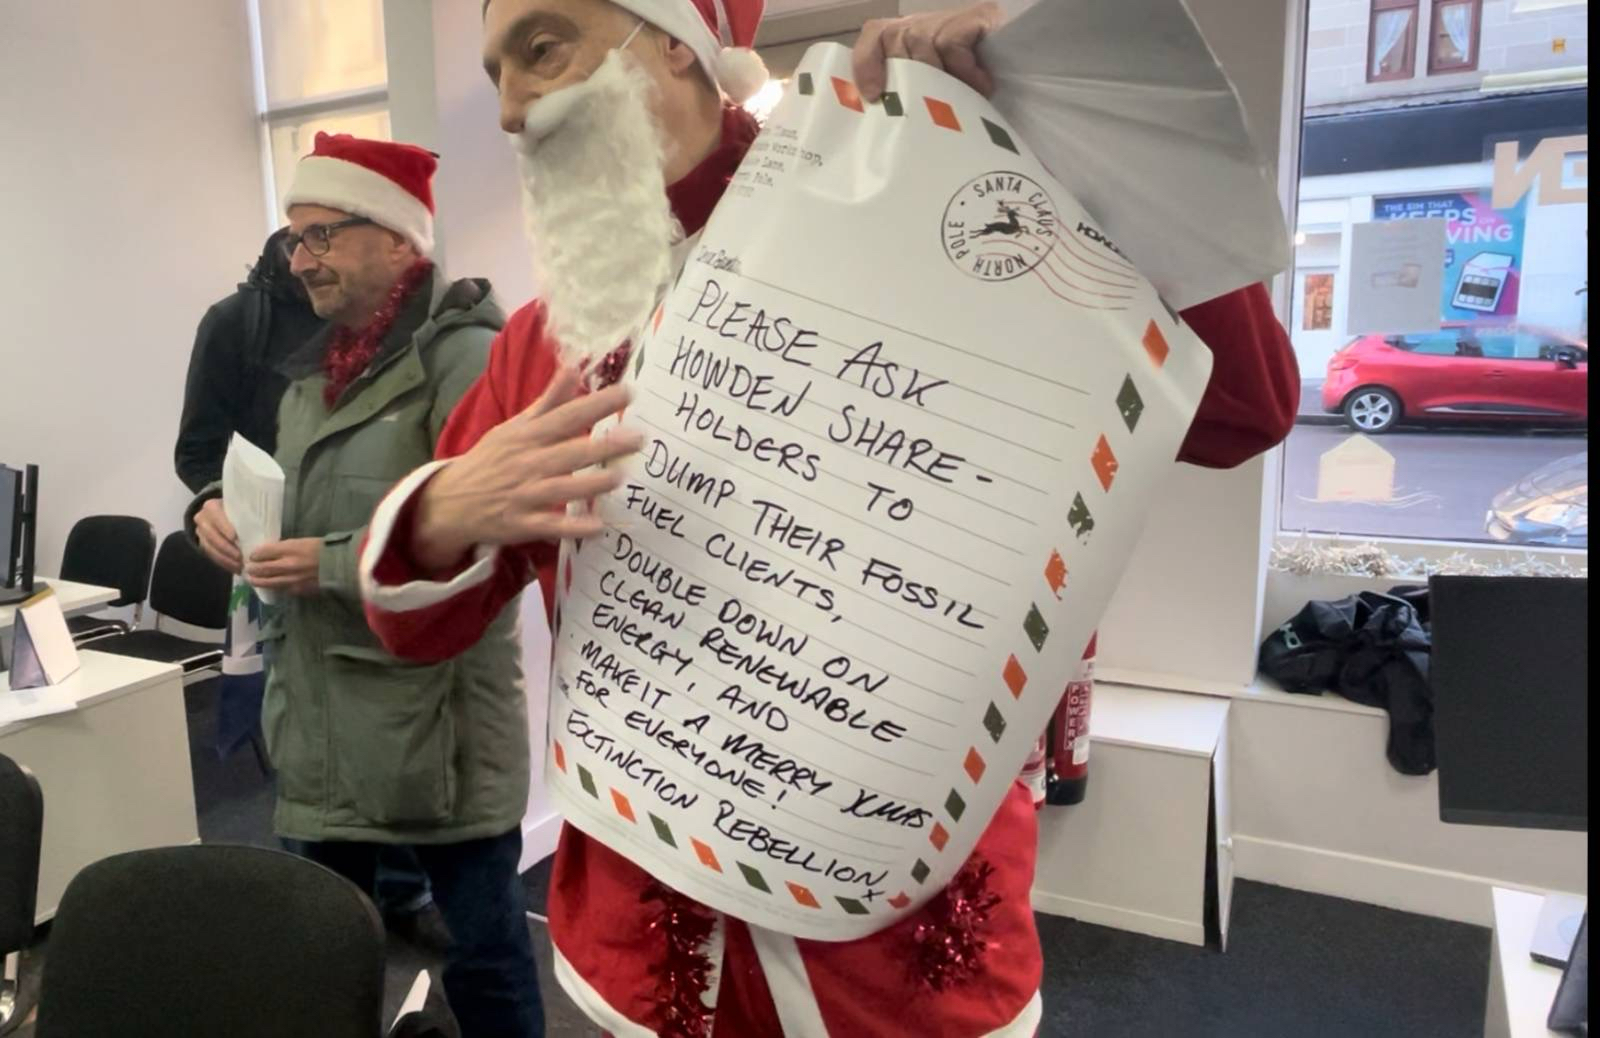 SANTA CLAUS
NORTH POLE
PLEASE ASK
HOWDEN SHARE-
HOLDERS TO
· DUMP THEIR FOSSIL
FUEL CLIENTS,
· DOUBLE DOWN ON
CLEAN RENEWABLE
ENERGY, AND
· MAKE IT A MERRY XMAS
FOR EVERYONE!
EXTINCTION REBELLION x
THE SIM THAT
KEEPS ON
GIVING
POWERX